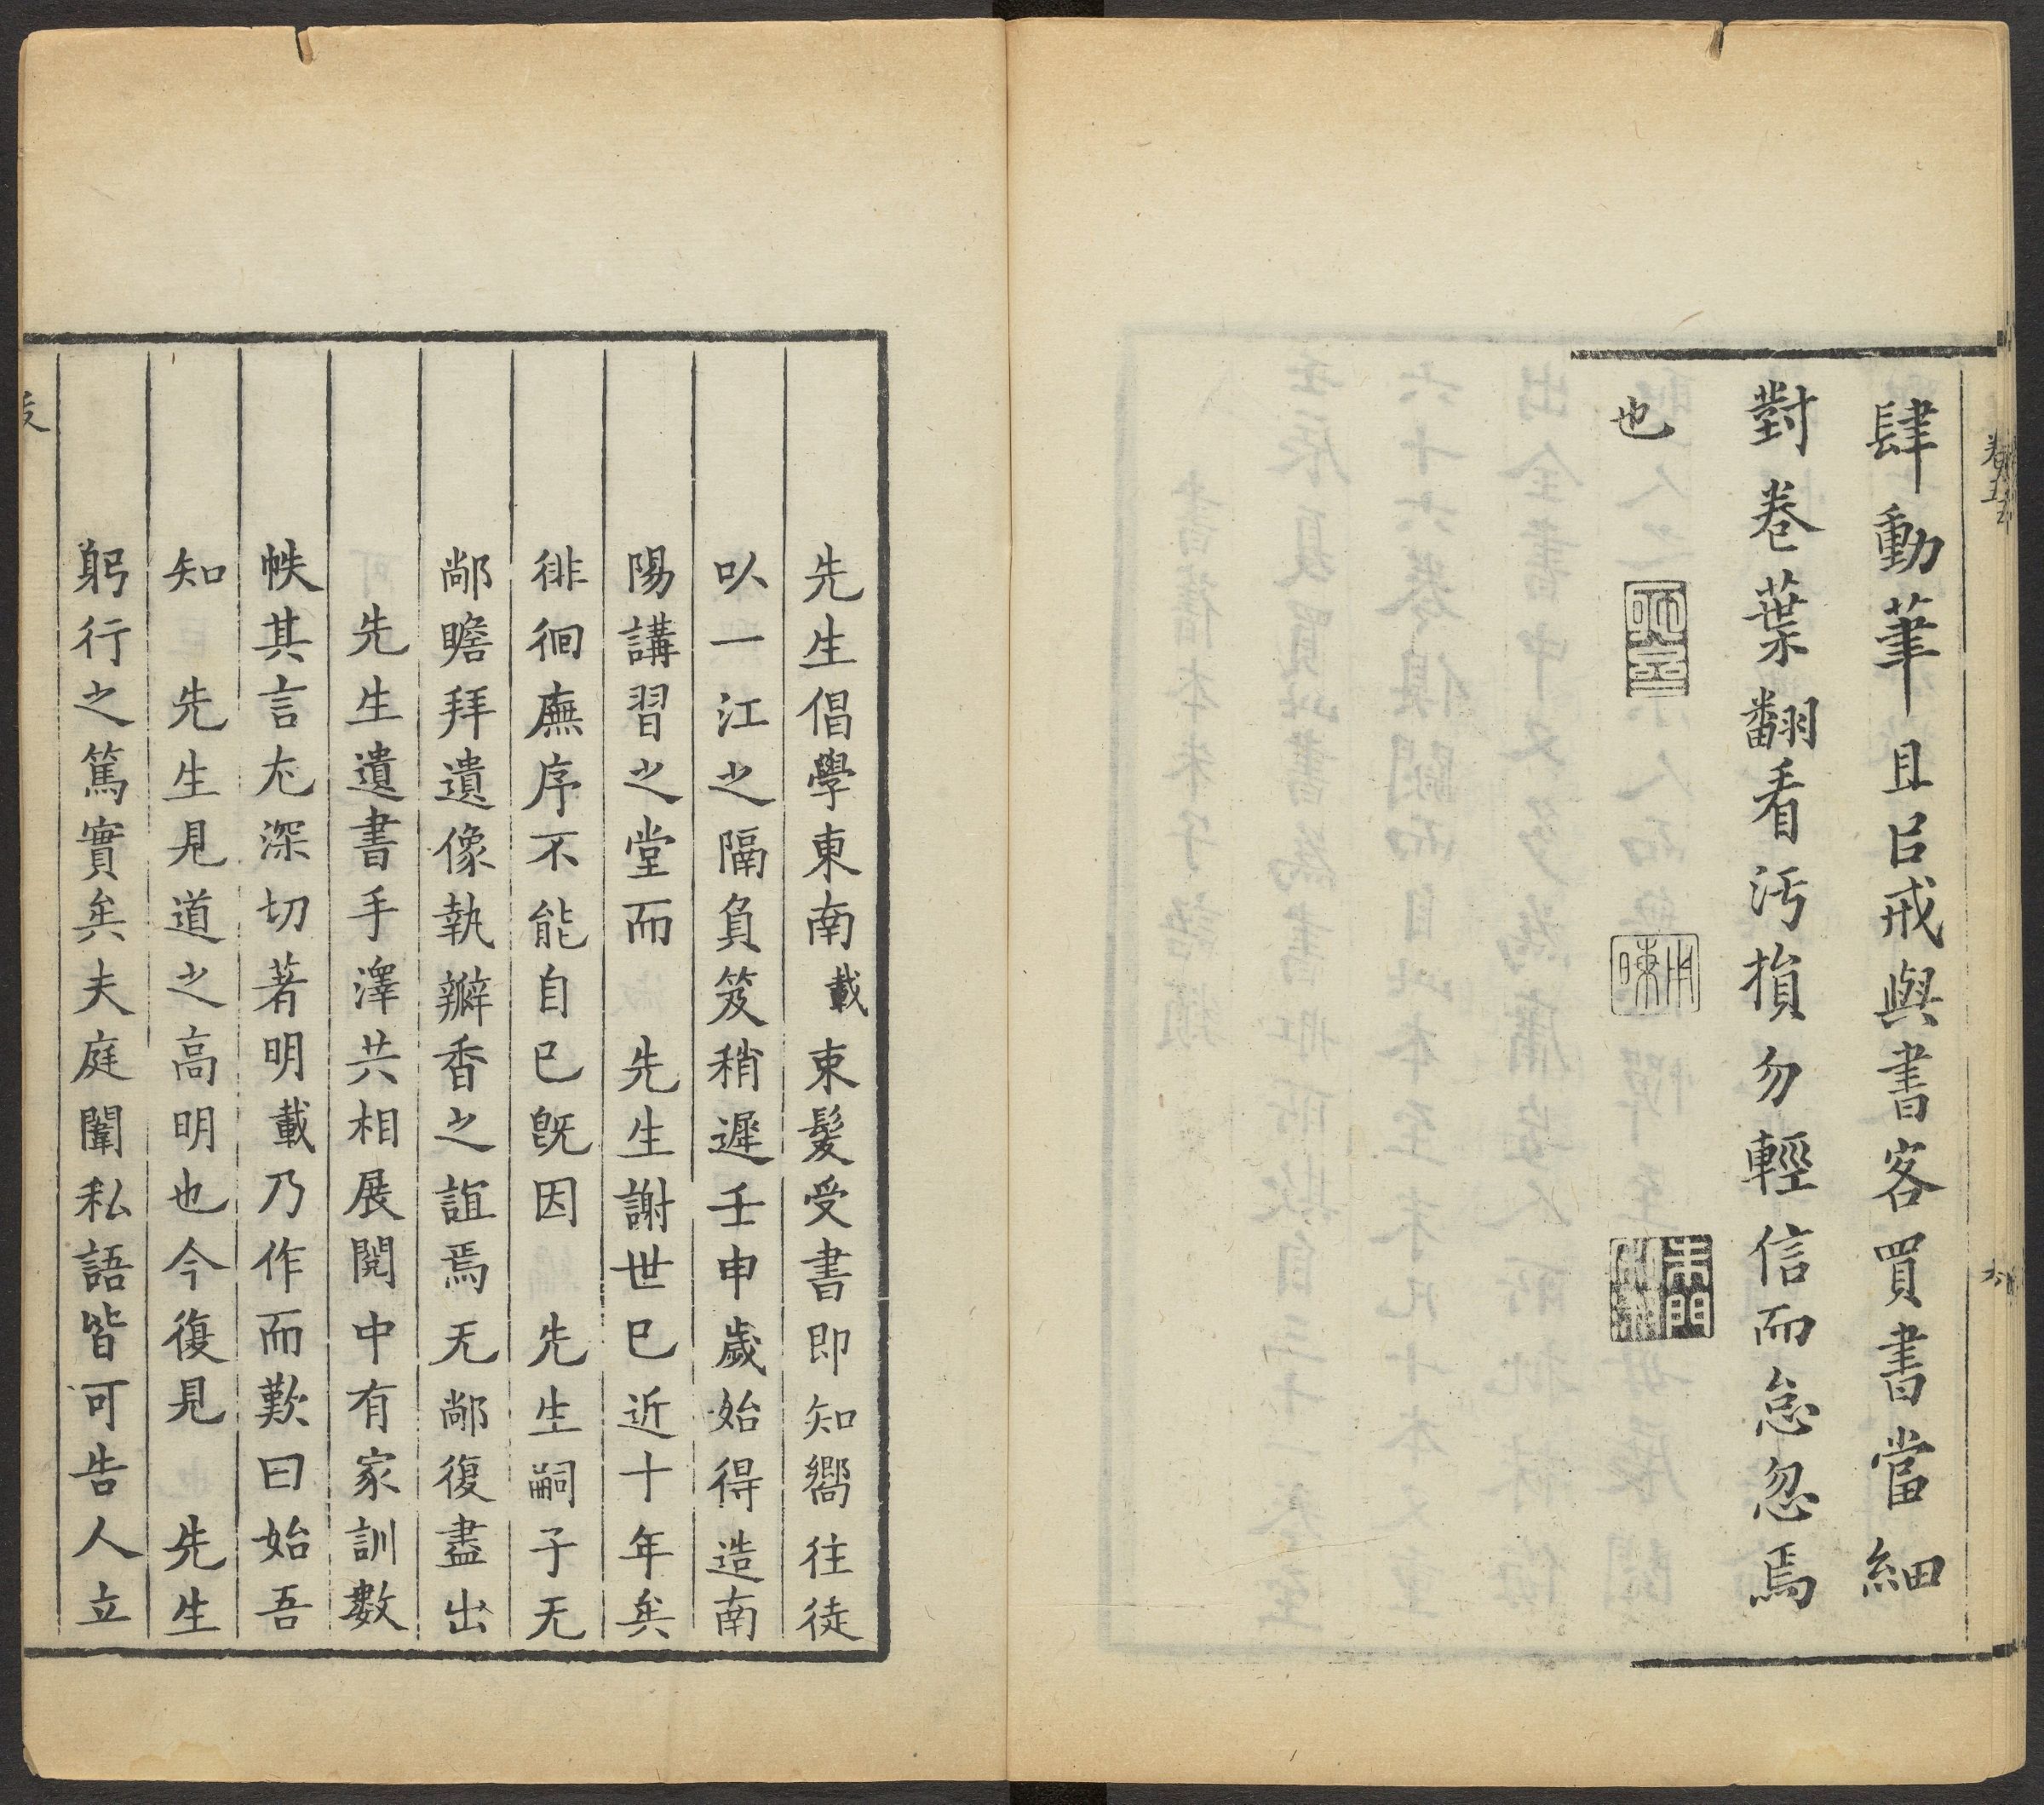 肆動筆且㠯戒與書客買書當細
對卷葉翻看汚損勿輕信而怠忽焉
也
先生倡學東南載束髮受書即知嚮往徒
㕥一江之隔負笈稍遲壬申歲始得造南
陽講習之堂而　先生謝世已近十年矣
徘徊廡序不能自已旣因　先生嗣子无
鄗瞻拜遺像執瓣香之誼焉无鄗復盡出
先生遺書手澤共相展閱中有家訓數
帙其言尤深切著明載乃作而歎曰始吾
知　先生見道之高明也今復見　先生
躬行之篤實矣夫庭闈私語皆可告人立